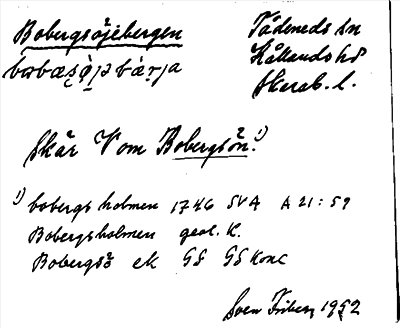 Bobergsöjebergen
Tådeneds sn
Kållands hd
Skarab. l.
Skär V om Bobergsön.¹⁾
¹⁾ bobergs holmen 1746 SVA A 21:59
Bobergsholmen geol. K.
Bobergsö ek GS GSkonc
Sven Friberg 1952